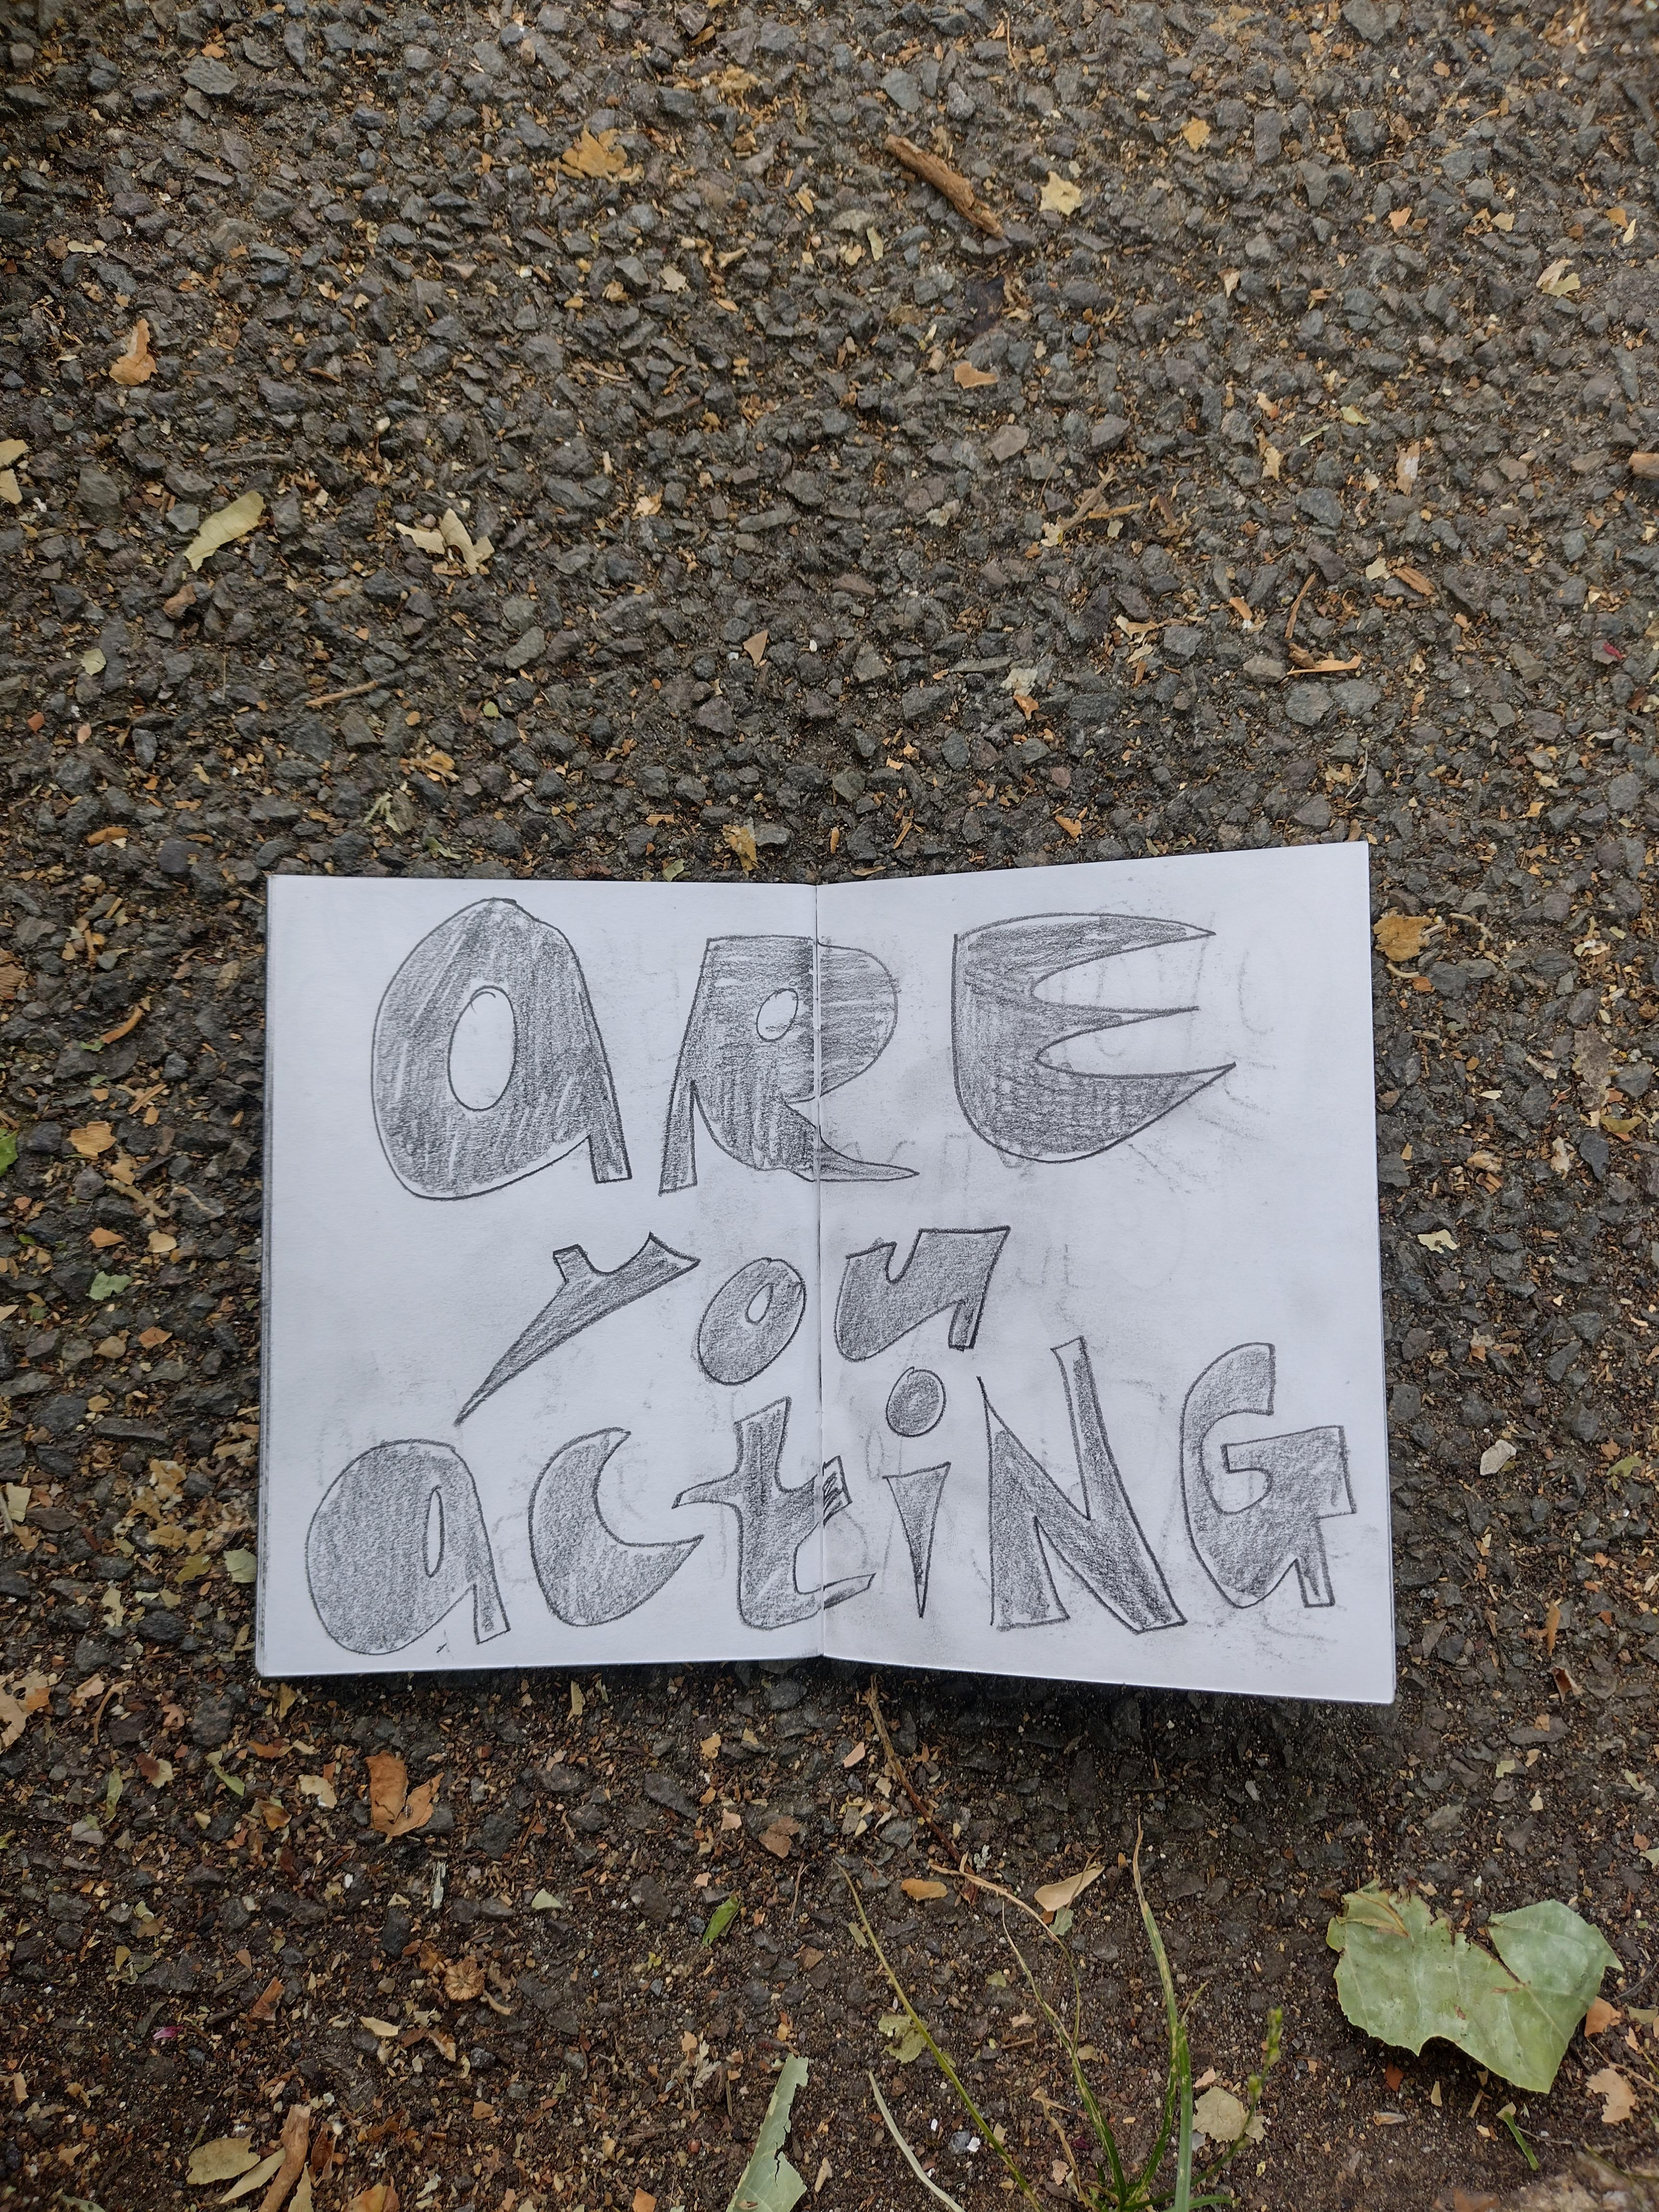 aRE
you
actiNG